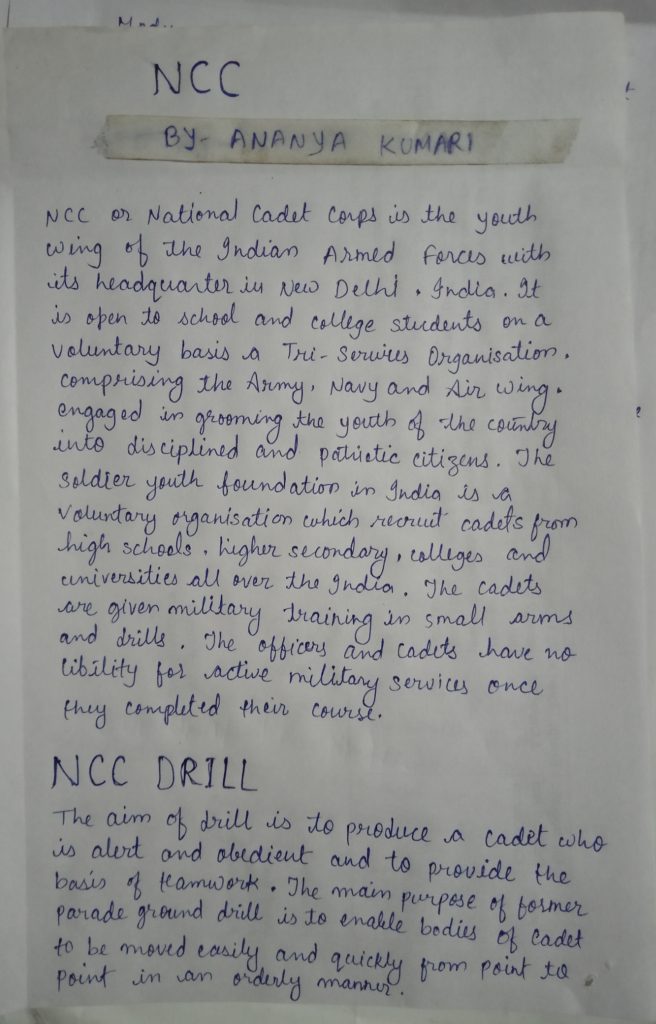 NCC
BY- ANANYA KUMARI
NCC or National Cadet Corps is the youth
wing of the Indian Armed Forces with
its headquarter in New Delhi , India. It
is open to school and college students on a
voluntary basis a Tri- Services Organisation.
comprising the Army, Navy and Air wing.
engaged in grooming the youth of the country
into disciplined and patriotic citizens. The
Soldier youth foundation in India is a
voluntary organisation which recruit cadets from
high schools, higher secondary, colleges and
universities all over the India. The cadets
are given military training in small arms
and drills. The officers and cadets have no
libility for active military services once
they completed their course.
NCC DRILL
The aim of drill is to produce a cadet who
is alert and obedient and to provide the
basis of teamwork. The main purpose of former
parade ground drill is to enable bodies of cadet
to be moved easily and quickly from point to
point in an orderly manner.